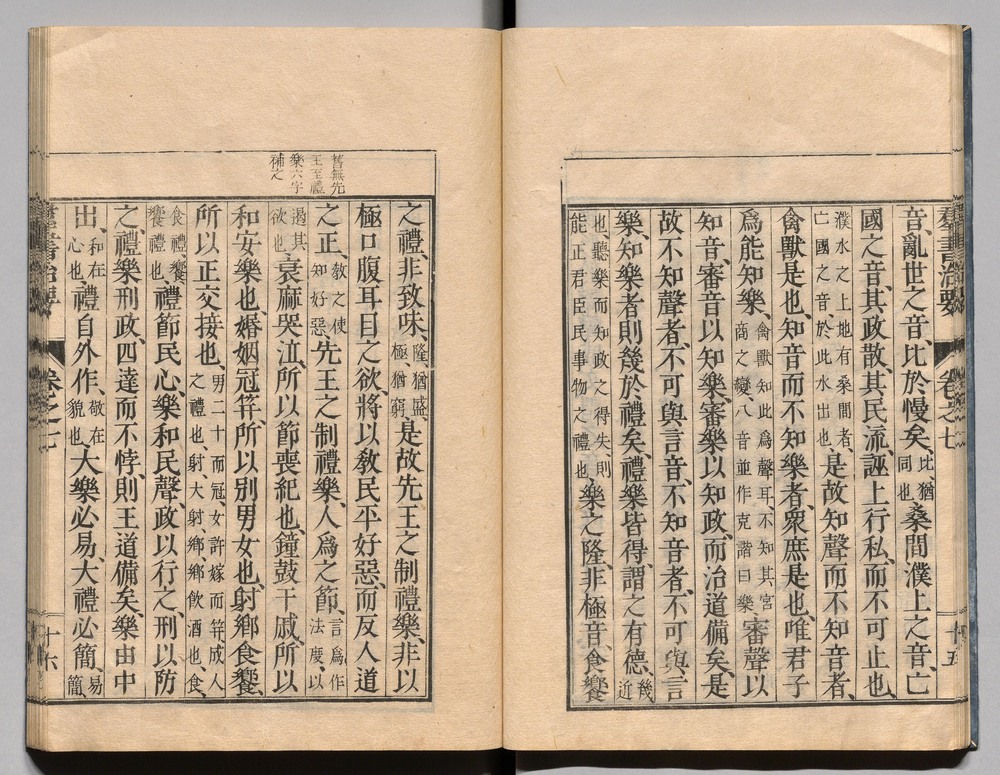 羣書治要 卷之七 十五
音、亂世之音、比於慢矣、比、猶同也、桑間濮上之音、亡
國之音、其政散、其民流、誣上行私、而不可止也、
濮水之上地有桑間者、亡國之音、於此水出也、是故知聲而不知音者、
禽獸是也、知音而不知樂者、衆庶是也、唯君子
爲能知樂、禽獸知此爲聲耳、不知其宮商之變、八音並作克諧曰樂審聲以
知音、審音以知樂、審樂以知政、而治道備矣、是
故不知聲者、不可與言音、不知音者、不可與言
樂、知樂者則幾於禮矣、禮樂皆得、謂之有德、幾近
也、聽樂而知政之得失、則能正君臣民事物之禮也、樂之隆、非極音、食饗
舊無先
王至禮
樂六字
補之
之禮、非致味、隆、猶盛、極、猶窮、是故先王之制禮樂、非以
極口腹耳目之欲、將以敎民平好惡、而反人道
之正、敎之使知好惡、先王之制禮樂、人爲之節、言爲作法度、以
遏其欲也、衰麻哭泣、所以節喪紀也、鐘鼓干戚、所以
和安樂也、婚姻冠笄、所以別男女也、射鄉食饗、
所以正交接也、男二十而冠、女許嫁而笄、成人之禮也、射、大射、鄉、鄉飮酒也、食、
食禮、饗、饗禮也、禮節民心、樂和民聲、政以行之、刑以防
之、禮樂刑政、四達而不悖、則王道備矣、樂由中
出、和在心也、禮自外作、敬在貌也、大樂必易、大禮必簡、易簡、
羣書治要 卷之七 十六